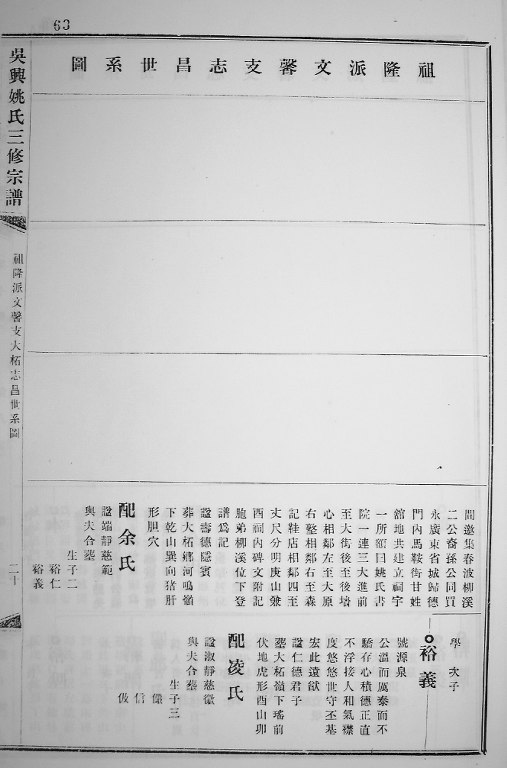 63
祖隆派文馨支志昌世系圖
吳興姚氏三修宗譜
祖隆派文馨支大柘志昌世系圖
二十
間邀集春波柳溪
二公裔孫公同買
永廣東省城歸德
門內馬鞍街甘姓
舘地共建立祠宇
一所額曰姚氏書
院一連三大進前
至大街後至後墻
心相鄰左至大原
右壑相鄰右至森
記鞋店相鄰四至
丈尺分明庚山
酉祠內碑文附記
胞弟柳溪位下登
譜爲記
諡壽德隱賓
葬大柘鄉河鳴
下乾山巽向猪肝
形胆穴
配余氏
諡端靜慈範
與夫合墓
生子二
裕仁
裕義
學 次子
裕義
號源泉
公溫而厲泰而不
驕存心積德正直
不浮接人和氣襟
度悠悠世守丕基
宏此遠猷
諡仁德君子
墓大柘嶺下瑤前
伏地虎形酉山卯
配凌氏
諡淑靜慈徽
與夫合墓
生子三
信